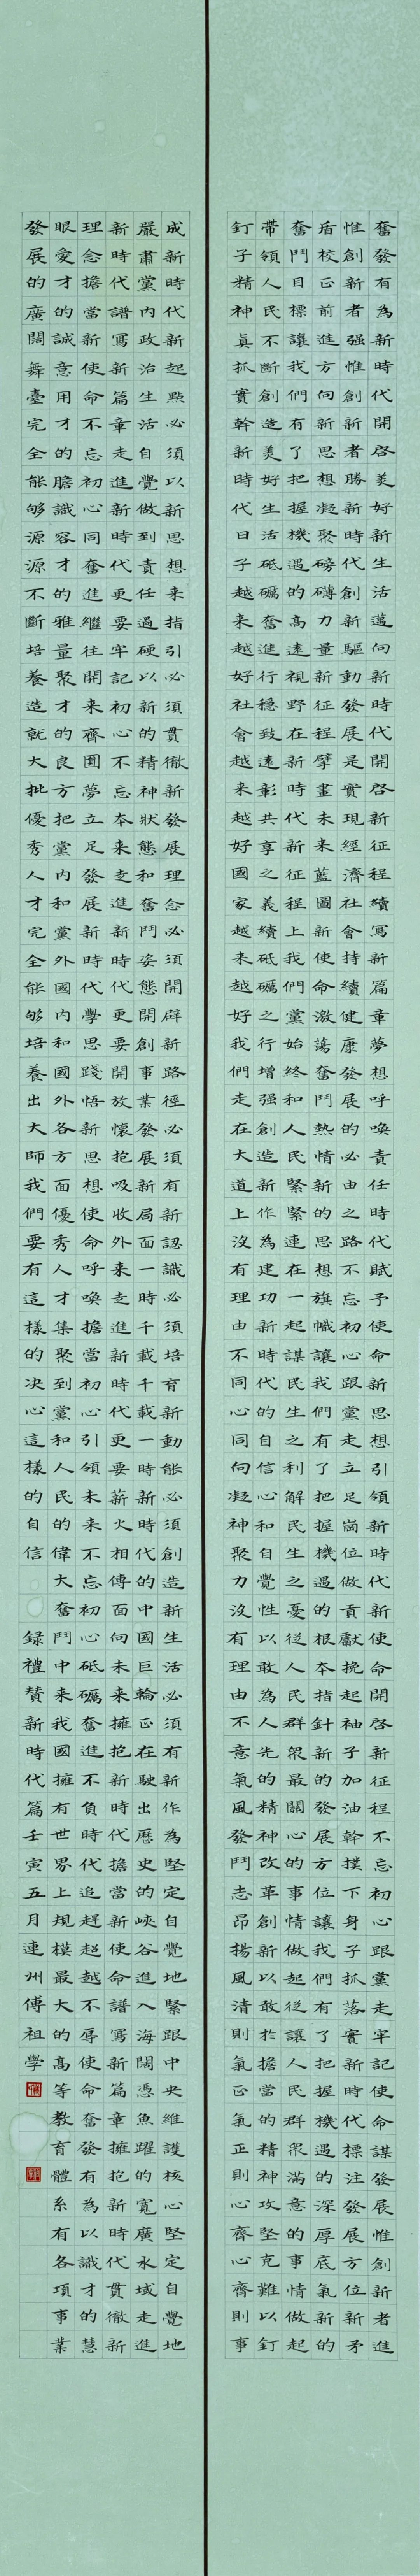 奮發有為新時代開啓美好新生活邁向新時代開啓新征程續寫新篇章夢想呼喚責任時代賦予使命新思想引領新時代新使命開啓新征程不忘初心跟黨走牢記使命謀發展惟創新者進
惟創新者强惟創新者勝新時代創新驅動發展是實現經濟社會持續健康發展的必由之路不忘初心跟黨走立足崗位做貢獻挽起袖子加油幹撲下身子抓落實新時代標注發展方位新矛
盾校正前進方向新思想凝聚磅礴力量新征程擘畫未來藍圖新使命激蕩奮鬥熱情新的思想旗幟讓我們有了把握機遇的根本指針新的發展方位讓我們有了把握機遇的深厚底氣新的
奮鬥目標讓我們有了把握機遇的高遠視野在新時代新征程上我們黨始終和人民緊緊連在一起謀民生之利解民生之憂從人民群衆最關心的事情做起從讓人民群衆滿意的事情做起
帶領人民不斷創造美好生活砥礪奮進行穩致遠彰共享之義續砥礪之行增强創造新作為建功新時代的自信心和自覺性以敢為人先的精神改革創新以敢於擔當的精神攻堅克難以釘
釘子精神真抓實幹新時代日子越來越好社會越來越好國家越來越好我們走在大道上沒有理由不同心同向凝神聚力沒有理由不意氣風發鬥志昂揚風清則氣正氣正則心齊心齊則事
成新時代新起點必須以新思想來指引必須貫徹新發展理念必須開辟新路徑必須有新認識必須培育新動能必須創造新生活必須有新作為堅定自覺地緊跟中央維護核心堅定自覺地
嚴肅黨內政治生活自覺做到責任過硬以新的精神狀態和奮鬥姿態開創事業發展新局面一時千載千載一時新時代的中國巨輪正在駛出歷史的峽谷進入海闊憑魚躍的寬廣水域走進
新時代譜寫新篇章走進新時代更要牢記初心不忘本來走進新時代更要開放懷抱吸收外來走進新時代更要薪火相傳面向未來擁抱新時代擔當新使命譜寫新篇章擁抱新時代貫徹新
理念擔當新使命不忘初心同奮進繼往開來齊圓夢立足發展新時代學思踐悟新思想使命呼喚擔當初心引領未來不忘初心砥礪奮進不負時代追趕超越不辱使命奮發有為以識才的慧
眼愛才的誠意用才的膽識容才的雅量聚才的良方把黨內和黨外國內和國外各方面優秀人才集聚到黨和人民的偉大奮鬥中來我國擁有世界上規模最大的高等教育體系有各項事業
發展的廣闊舞臺完全能够源源不斷培養造就大批優秀人才完全能够培養出大師我們要有這樣的决心這樣的自信 録禮贊新時代篇壬寅五月連州傅祖學